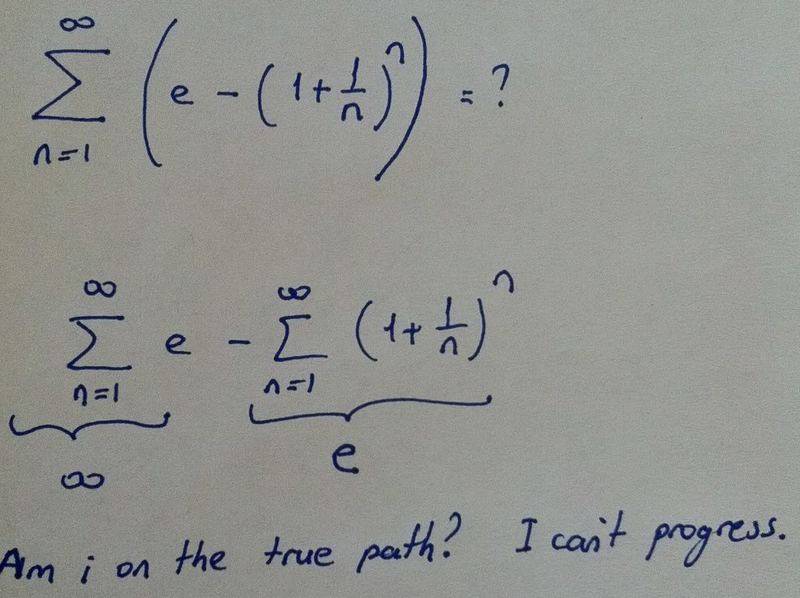 ∞ ∑ n=1 (e - (1 + 1/n)^n) = ?
∞ ∑ n=1 e - ∞ ∑ n=1 (1 + 1/n)^n
∞ e
Am i on the true path? I can't progress.